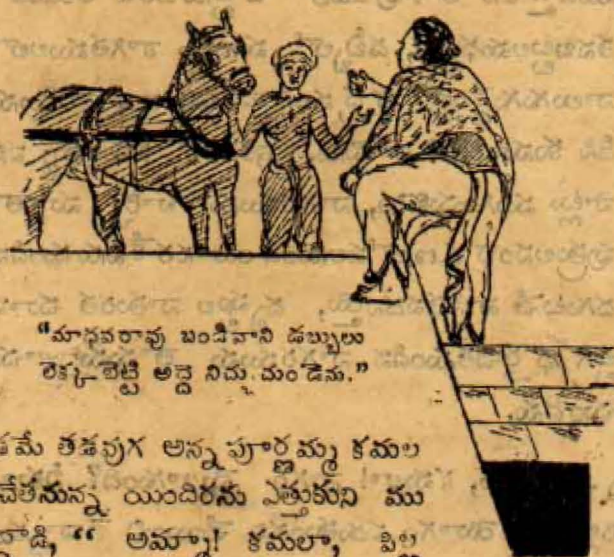 “మాధవరావు బండివాని డబ్బులు
లెక్క బెట్టి అద్దె నిచ్చు చుండెను.”
డమే తడవుగ అన్నపూర్ణమ్మ కమల
చేతనున్న యిందిరను ఎత్తుకుని ము
ద్దాడి, “ అమ్మా! కమలా, పిల్ల